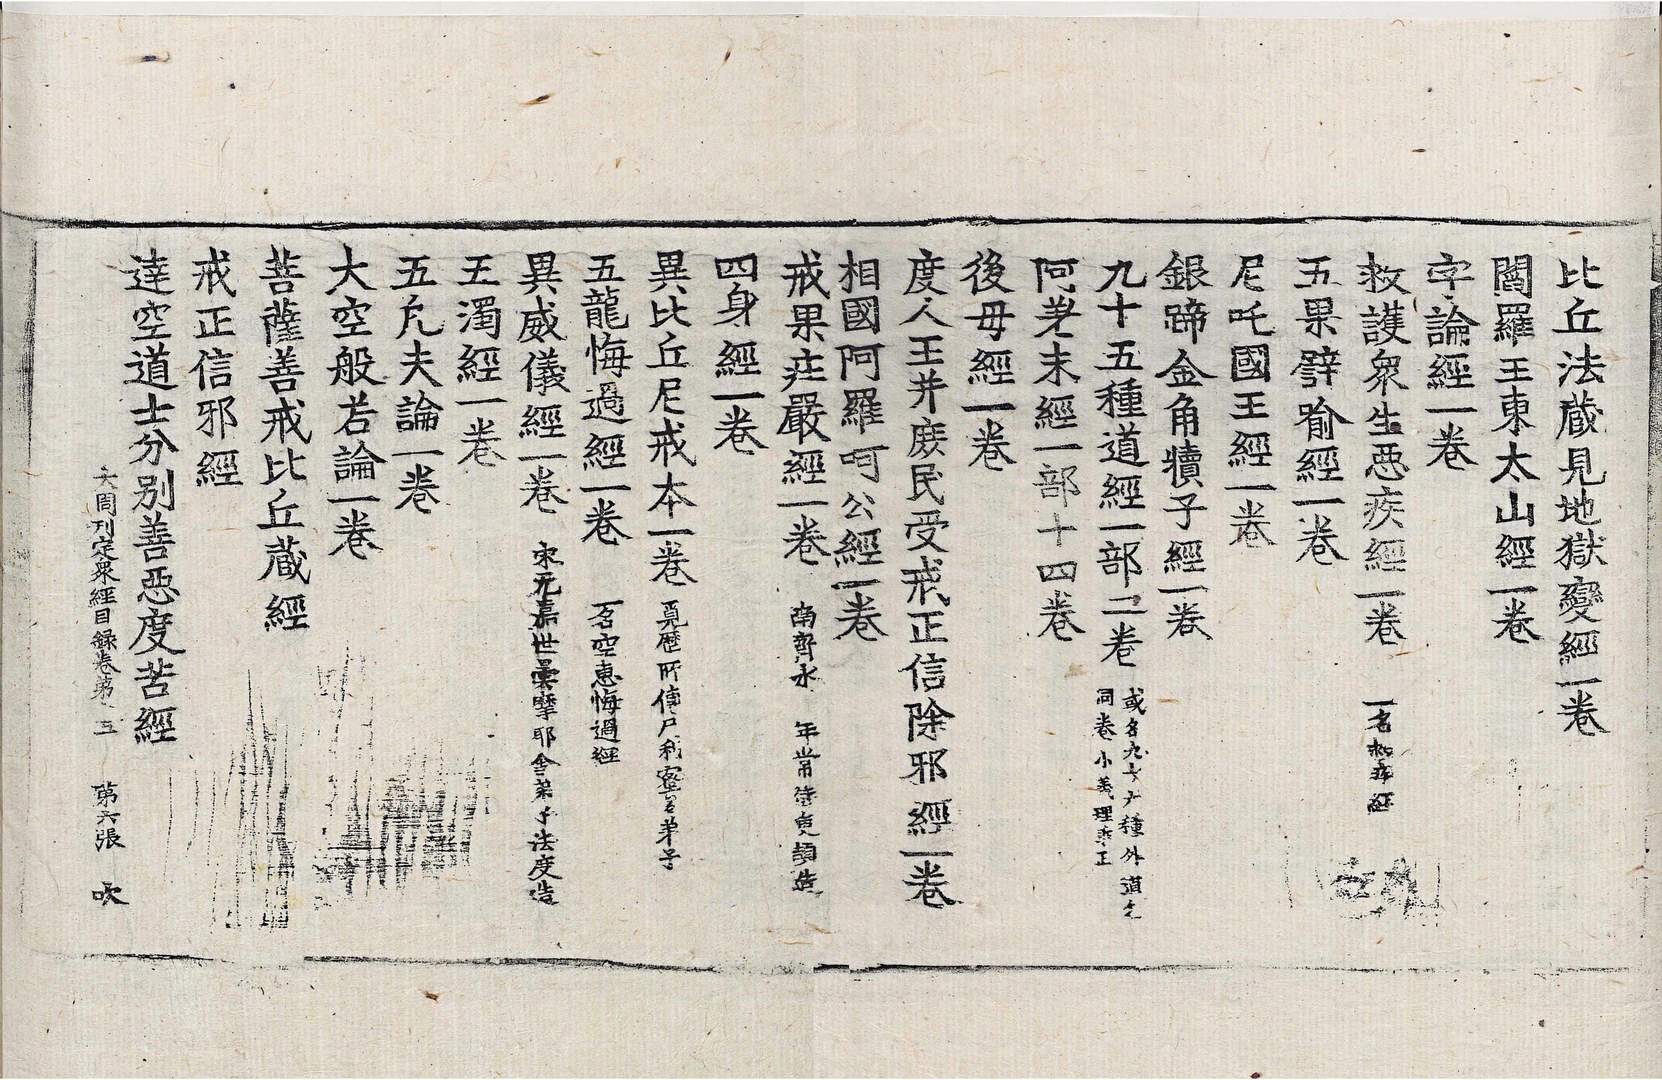 比丘法蔵見地獄變經一卷
閻羅王東太山經一卷
字論經一卷
救護衆生惡疾經一卷 一名
五果譬喻經一卷
尼吒國王經一卷
銀蹄金角犢子經一卷
九十五種道經一部二卷 或名九十六種外道
同卷小義理乖正
阿差末經一部十四卷
後母經一卷
度人王并庶民受戒正信除邪經一卷
相國阿羅呵公經一卷
戒果莊嚴經一卷 南齊永 年常侍庾頡造
四身經一卷
異比丘尼戒本一卷 覓歷所傳尸利蜜弟子
五龍悔過經一卷 一名空惠悔過經
異威儀經一卷 宋元嘉世曇摩耶舍弟子法度造
五濁經一卷
五凡夫論一卷
大空般若論一卷
菩薩善戒比丘蔵經
戒正信邪經
達空道士分別善惡度苦經
大周刊定衆經目録卷第 五 第六張 吹